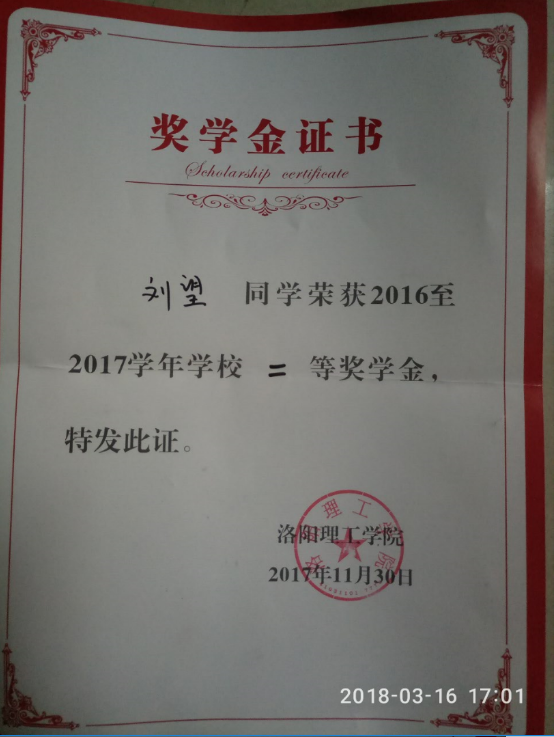 奖学金证书
Scholarship certificate
刘望 同学荣获2016至
2017学年学校 二 等奖学金，
特发此证。
洛阳理工学院
2017年11月30日
2018-03-16 17:01